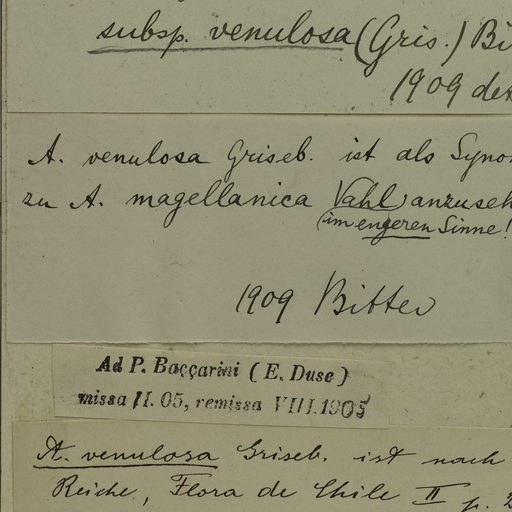 subsp. venulosa (Gris.) Bi
1909 det
A. venulosa Griseb. ist als Syno
zu A. magellanica Vahl anzuseh
(im engeren Sinne!
1909 Bitter
Ad P. Baççarini (E. Duse)
missa II. 05, remissa VIII.1905
A. venulosa Griseb. ist nach
Reiche, Flora de Chile II p. 2